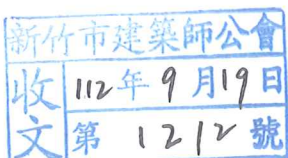 新竹市建築師公會
收文
112年9月19日
第1212號